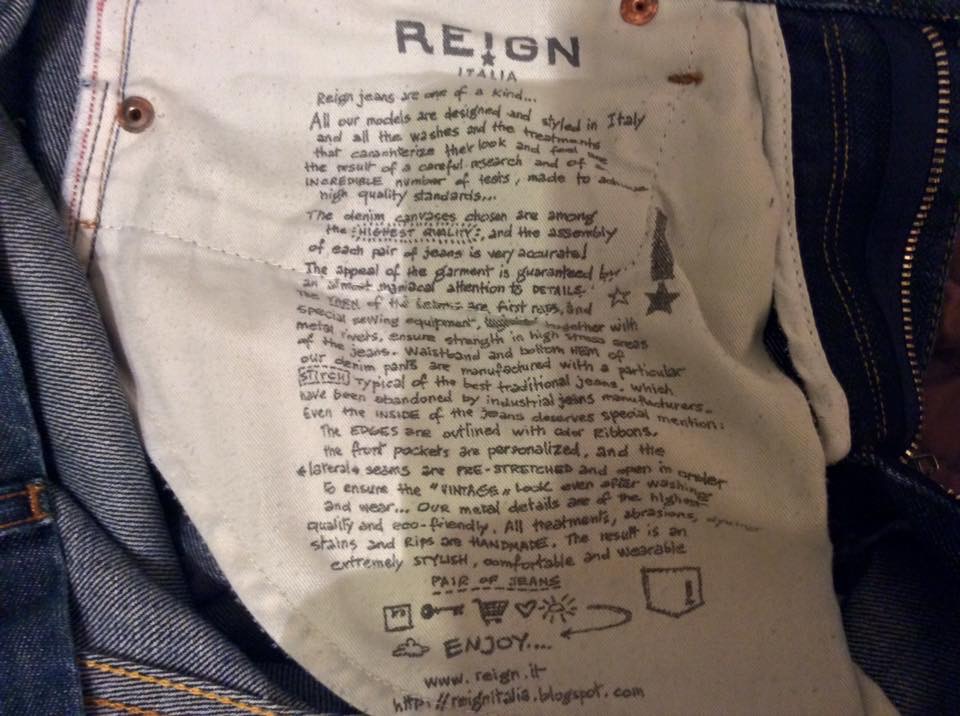 REIGN
ITALIA
Reign jeans are one of a kind...
All our models are designed and styled in Italy
and all the washes and the treatments
that carachterize their look and feel are
the result of a careful research and of a
INCREDIBLE number of tests, made to achieve
high quality standards...
The denim canvases chosen are among
the HIGHEST QUALITY, and the assembly
of each pair of jeans is very accurate!
The appeal of the garment is guaranteed by
an almost maniacal attention to DETAILS.
of the seams are first rate, and
special sewing equipment, together with
metal rivets, ensure strength in high stress areas
of the jeans. Waistband and bottom HEM of
our denim pants are manufactured with a particular
STITCH typical of the best traditional jeans, which
have been abandoned by industrial jeans manufacturers.
Even the INSIDE of the jeans deserves special mention:
The EDGES are outlined with color Ribbons,
the front pockets are personalized, and the
lateral seams are PRE-STRETCHED and open in order
to ensure the "VINTAGE" Look even after washing
and wear... Our metal details are of the highest
quality and eco-friendly. All treatments, abrasions,
stains and Rips are HANDMADE. The result is an
extremely STYLISH, comfortable and wearable
PAIR OF JEANS
ENJOY....
www.reign.it
http://reignitalia.blogspot.com